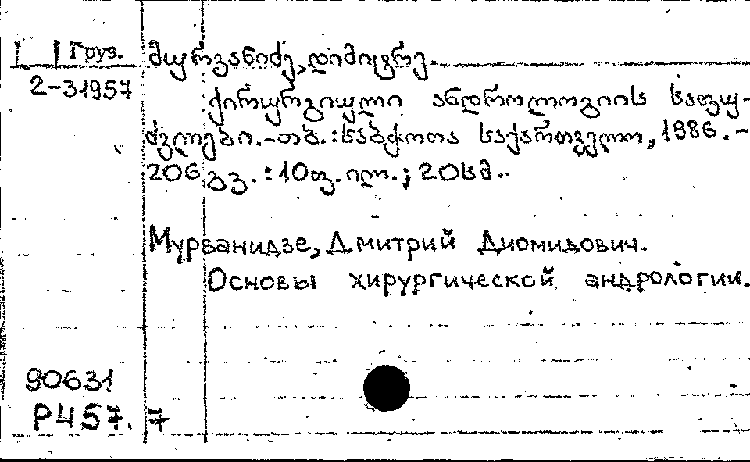 Груз.
მურვანიძე, დიმიტრი.
2-31957
ქირურგიული ანდროლოგიის საფუ-
ძვლები.-თბ.:საბჭოთა საქართველო, 1986.-
206 გვ.:10ფ.ილ.; 20სმ..
Мурванидзе, Дмитрий Диомидович.
Основы хирургической андрологии.
90631
Р457.7